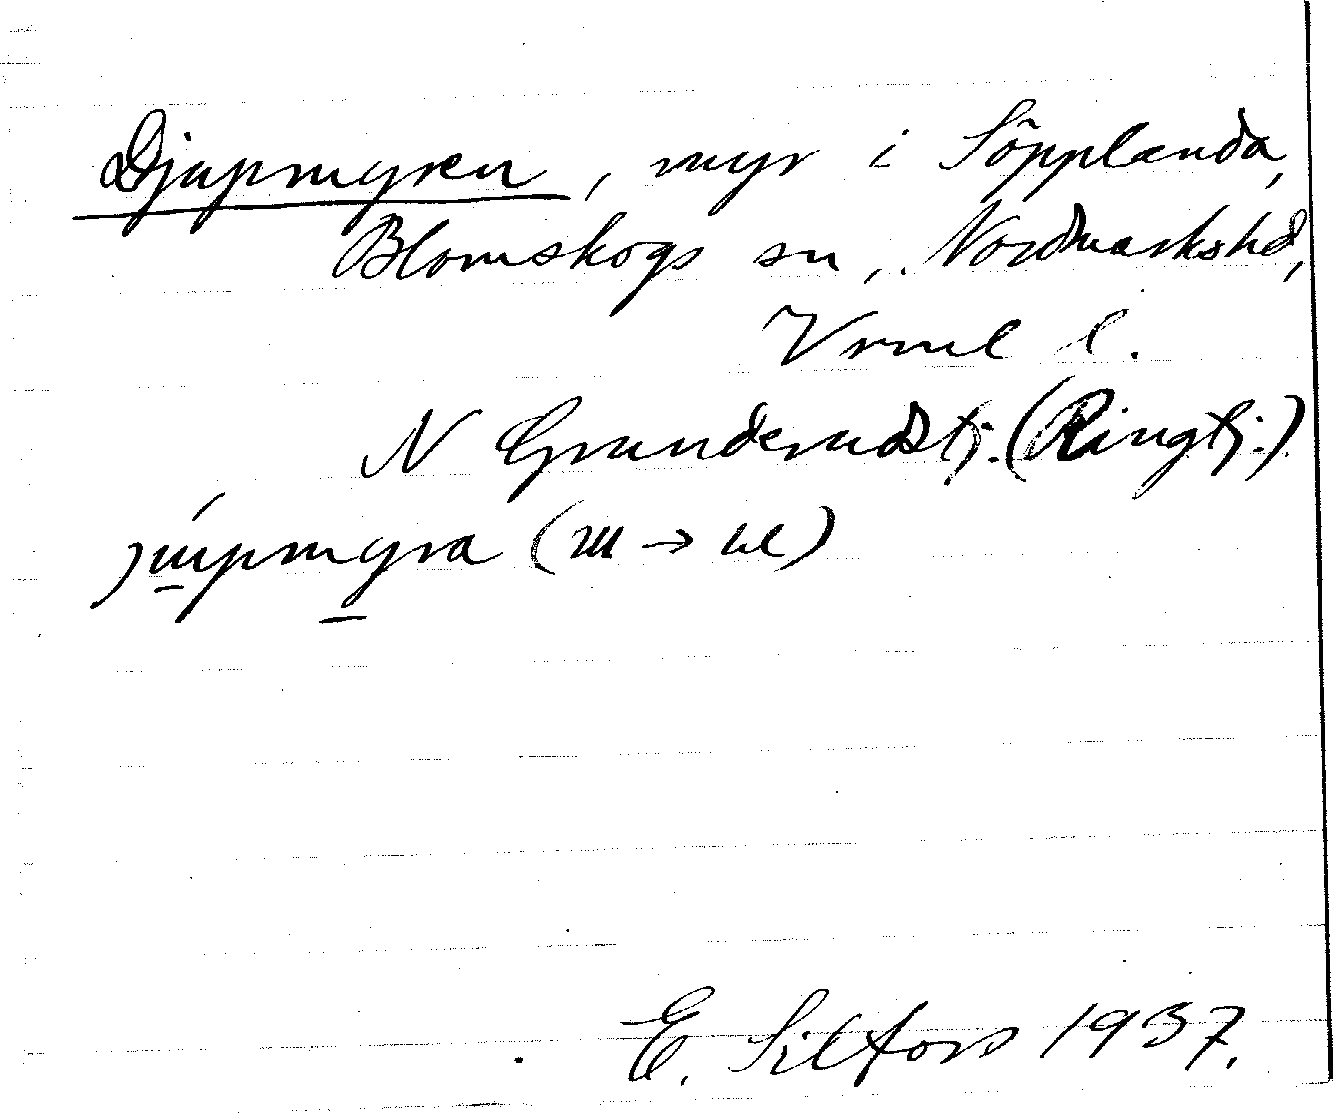 Djupmyren, myr i Söpplanda,
Blomskogs sn, Nordmarkshd,
Vrml l.
N Grunderudstj. (Ringtj.)
E. Silfors 1937.